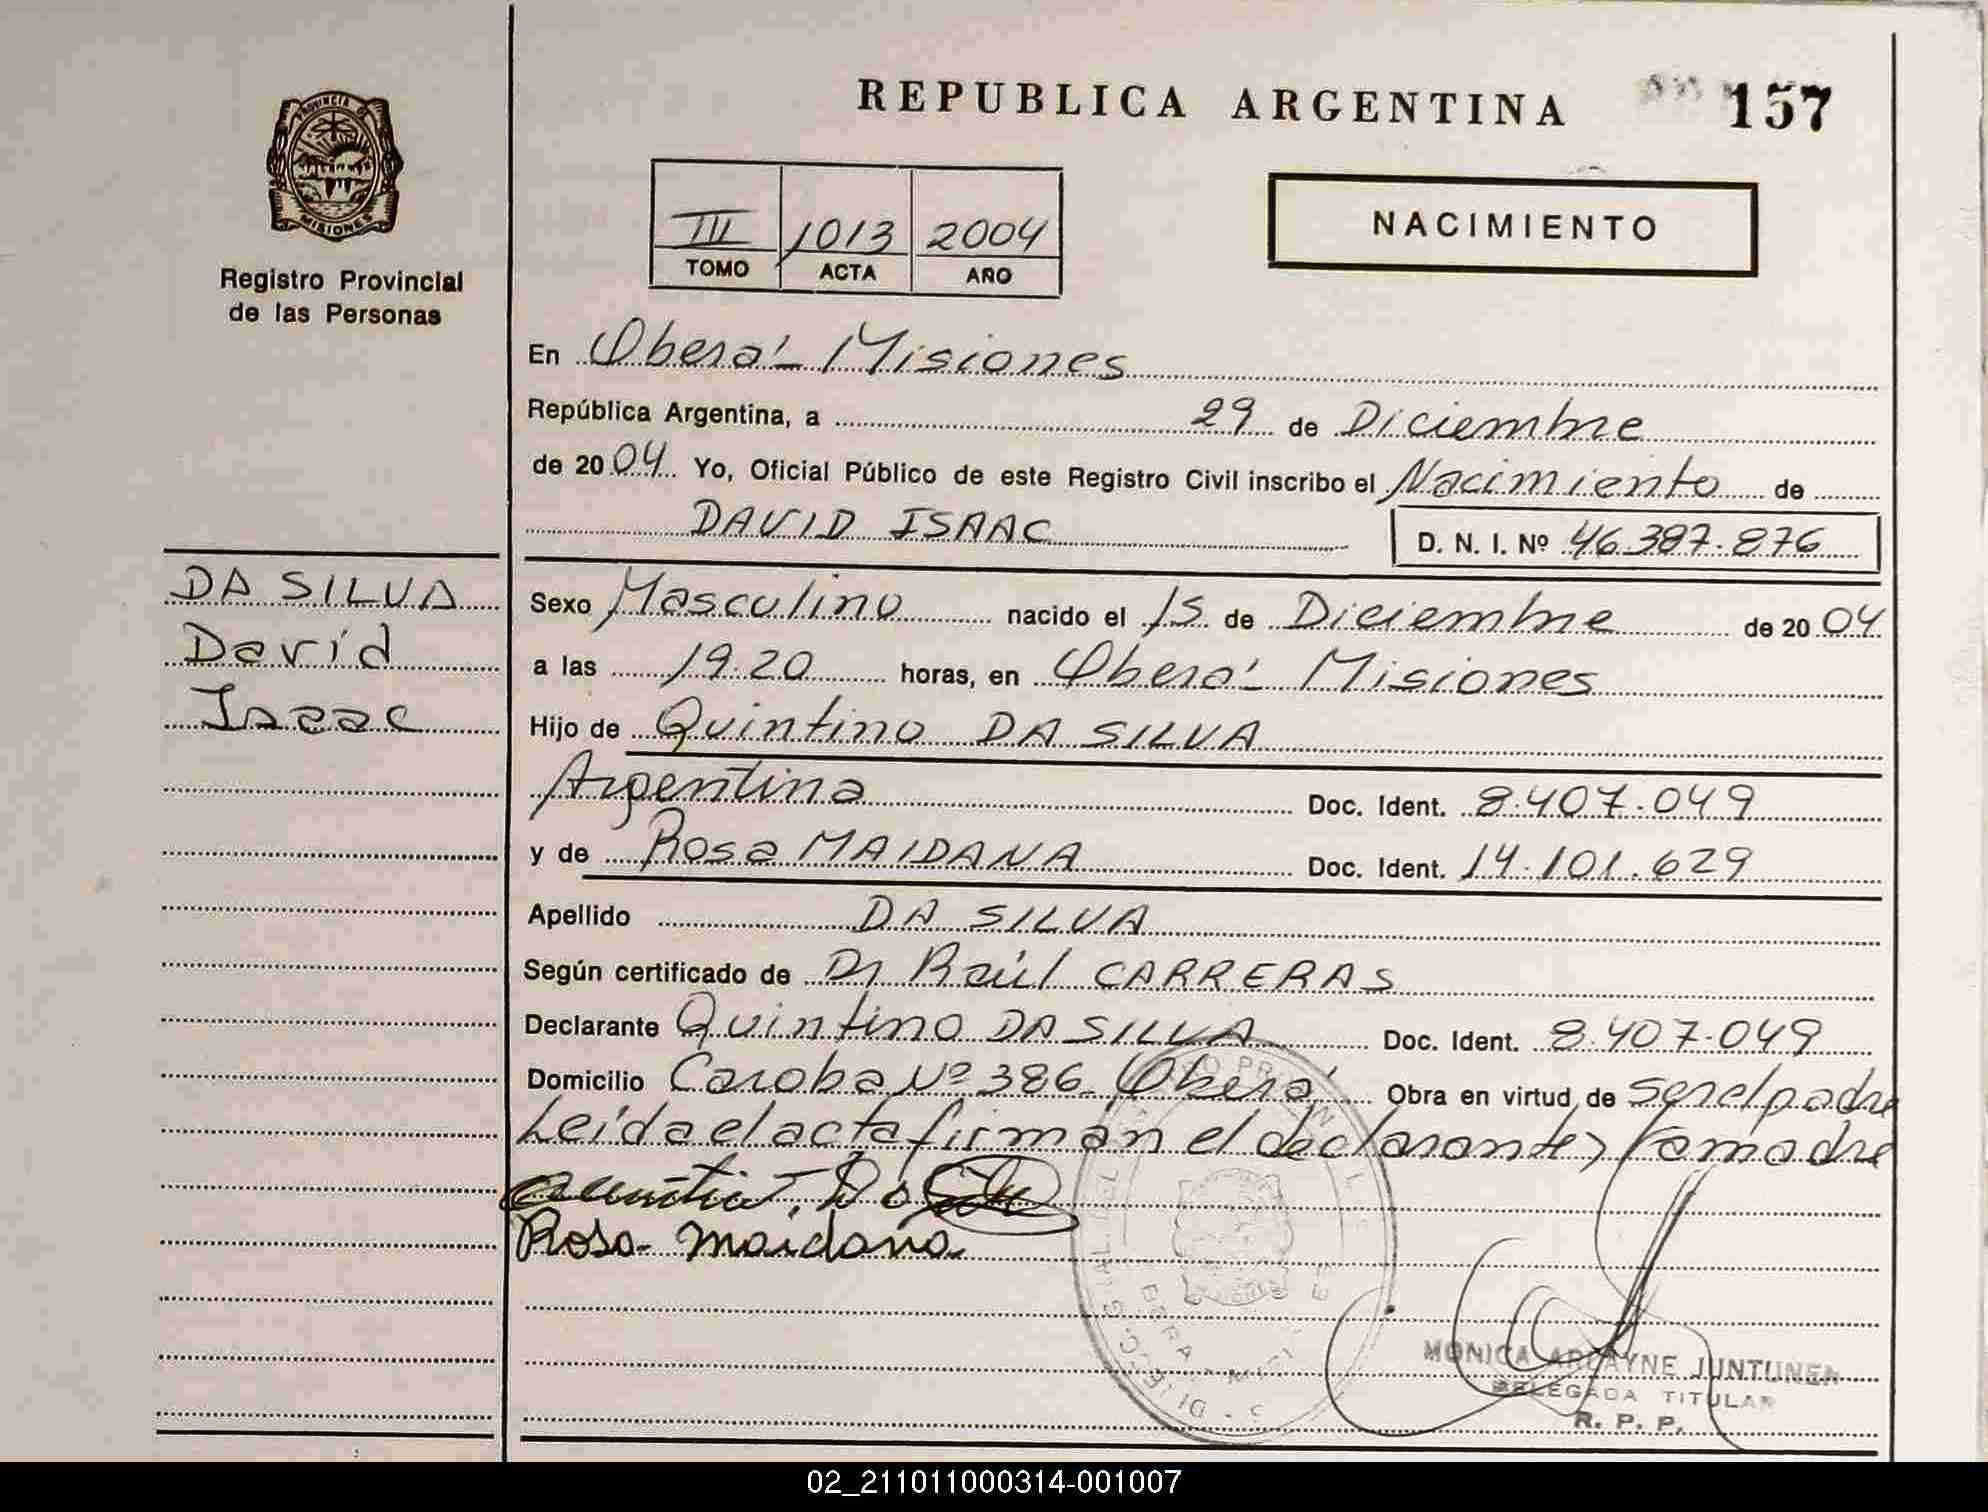 REPUBLICA ARGENTINA
157
PROVINCIA DE
MISIONES
Registro Provincial
de las Personas
III 1013 2004
TOMO ACTA AÑO
NACIMIENTO
En Oberá - Misiones
República Argentina, a 29 de Diciembre
de 2004 Yo, Oficial Público de este Registro Civil inscribo el Nacimiento de
DAVID ISAAC D. N. I. Nº 46.387.876
DA SILVA
David
Isaac
Sexo Masculino nacido el 15 de Diciembre de 2004
a las 19.20 horas, en Oberá - Misiones
Hijo de Quintino DA SILVA
Argentina Doc. Ident. 8.407.049
y de Rosa MAIDANA Doc. Ident. 14.101.629
Apellido DA SILVA
Según certificado de Dr Raúl CARRERAS
Declarante Quintino DA SILVA Doc. Ident. 8.407.049
Domicilio Caroba Nº 386 Oberá Obra en virtud de ser el padre
Leída el acta firman el declarante y la madre
Rosa Maidana
MONICA ARLAYNE JUNTUNEN
DELEGADA TITULAR
R. P. P.
02_211011000314-001007